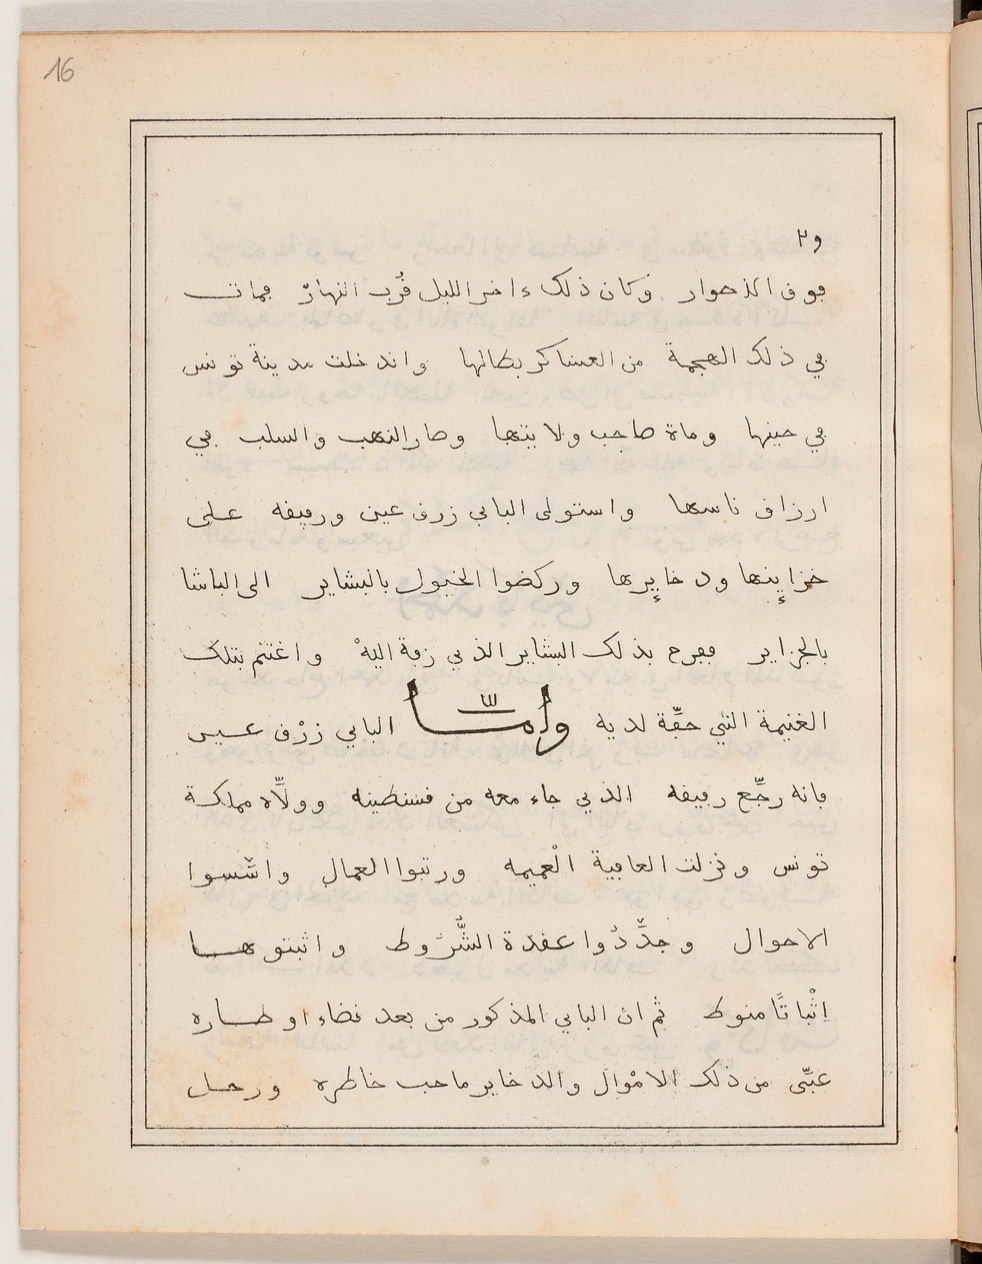 16
و٢
فوق الاذحوار وكان ذلك ءاخر الليل قُرب النهارْ فمات
في ذلك الهجمة من العساكر بطالها واندخلت مدينة تونس
في حينها وماة صاحب ولايتها وصار النهب والسلب في
ارزاق ناسها واستولى الباي زرق عين ورفيقه على
خزاينها ودخايرها وركضوا الخيول بالبشاير الى الباشا
بالجزاير ففرح بذلك البشاير الذي زفة اليهْ واغتنم بتلك
الغنيمة التي حفّة لديه وامّا الباي زرْق عين
فانه رجّع رفيقه الذي جاء معه من قسنطينه وولّاه مملكة
تونس ونزلت العافية الْعميمه ورتبوا العمال واسّسوا
الاحوال وجدّدُوا عقدة الشّرُوط واثبتوها
اِثْباتًا منوط ثم ان الباي المذكور من بعد قضاء اوطاره
عبّى من ذلك الامْوال والدخاير ما حب خاطره ورحل